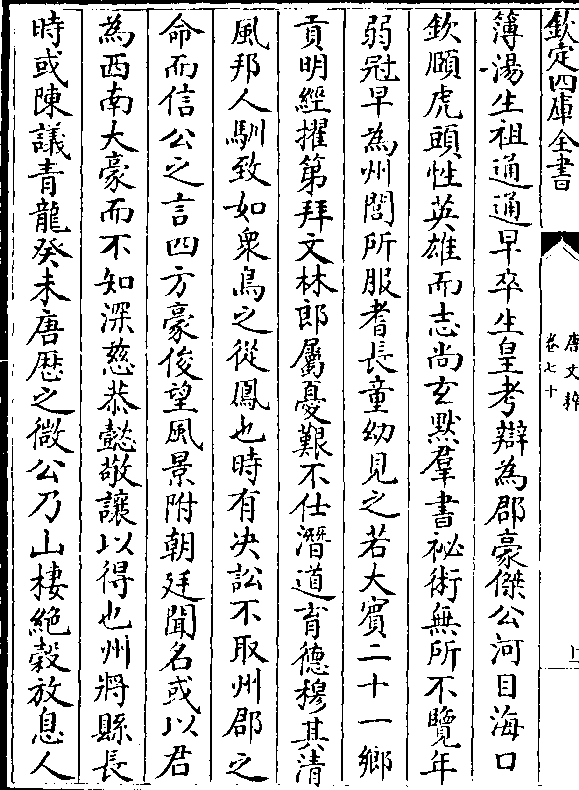 欽定四庫全書
唐文粹
卷七十
上
簿湯生祖通通早卒生皇考辯為郡豪傑公河目海口
欽頤虎頭性英雄而志尚玄默羣書祕術無所不覽年
弱冠早為州閭所服耆長童幼見之若大賓二十一鄉
貢明經擢第拜文林郎屬憂艱不仕潛道育德穆其清
風邦人馴致如衆鳥之從鳳也時有决訟不取州郡之
命而信公之言四方豪俊望風景附朝廷聞名或以君
為西南大豪而不知深慈恭懿敬讓以得也州將縣長
時或陳議青龍癸未唐歴之微公乃山棲絶穀放息人